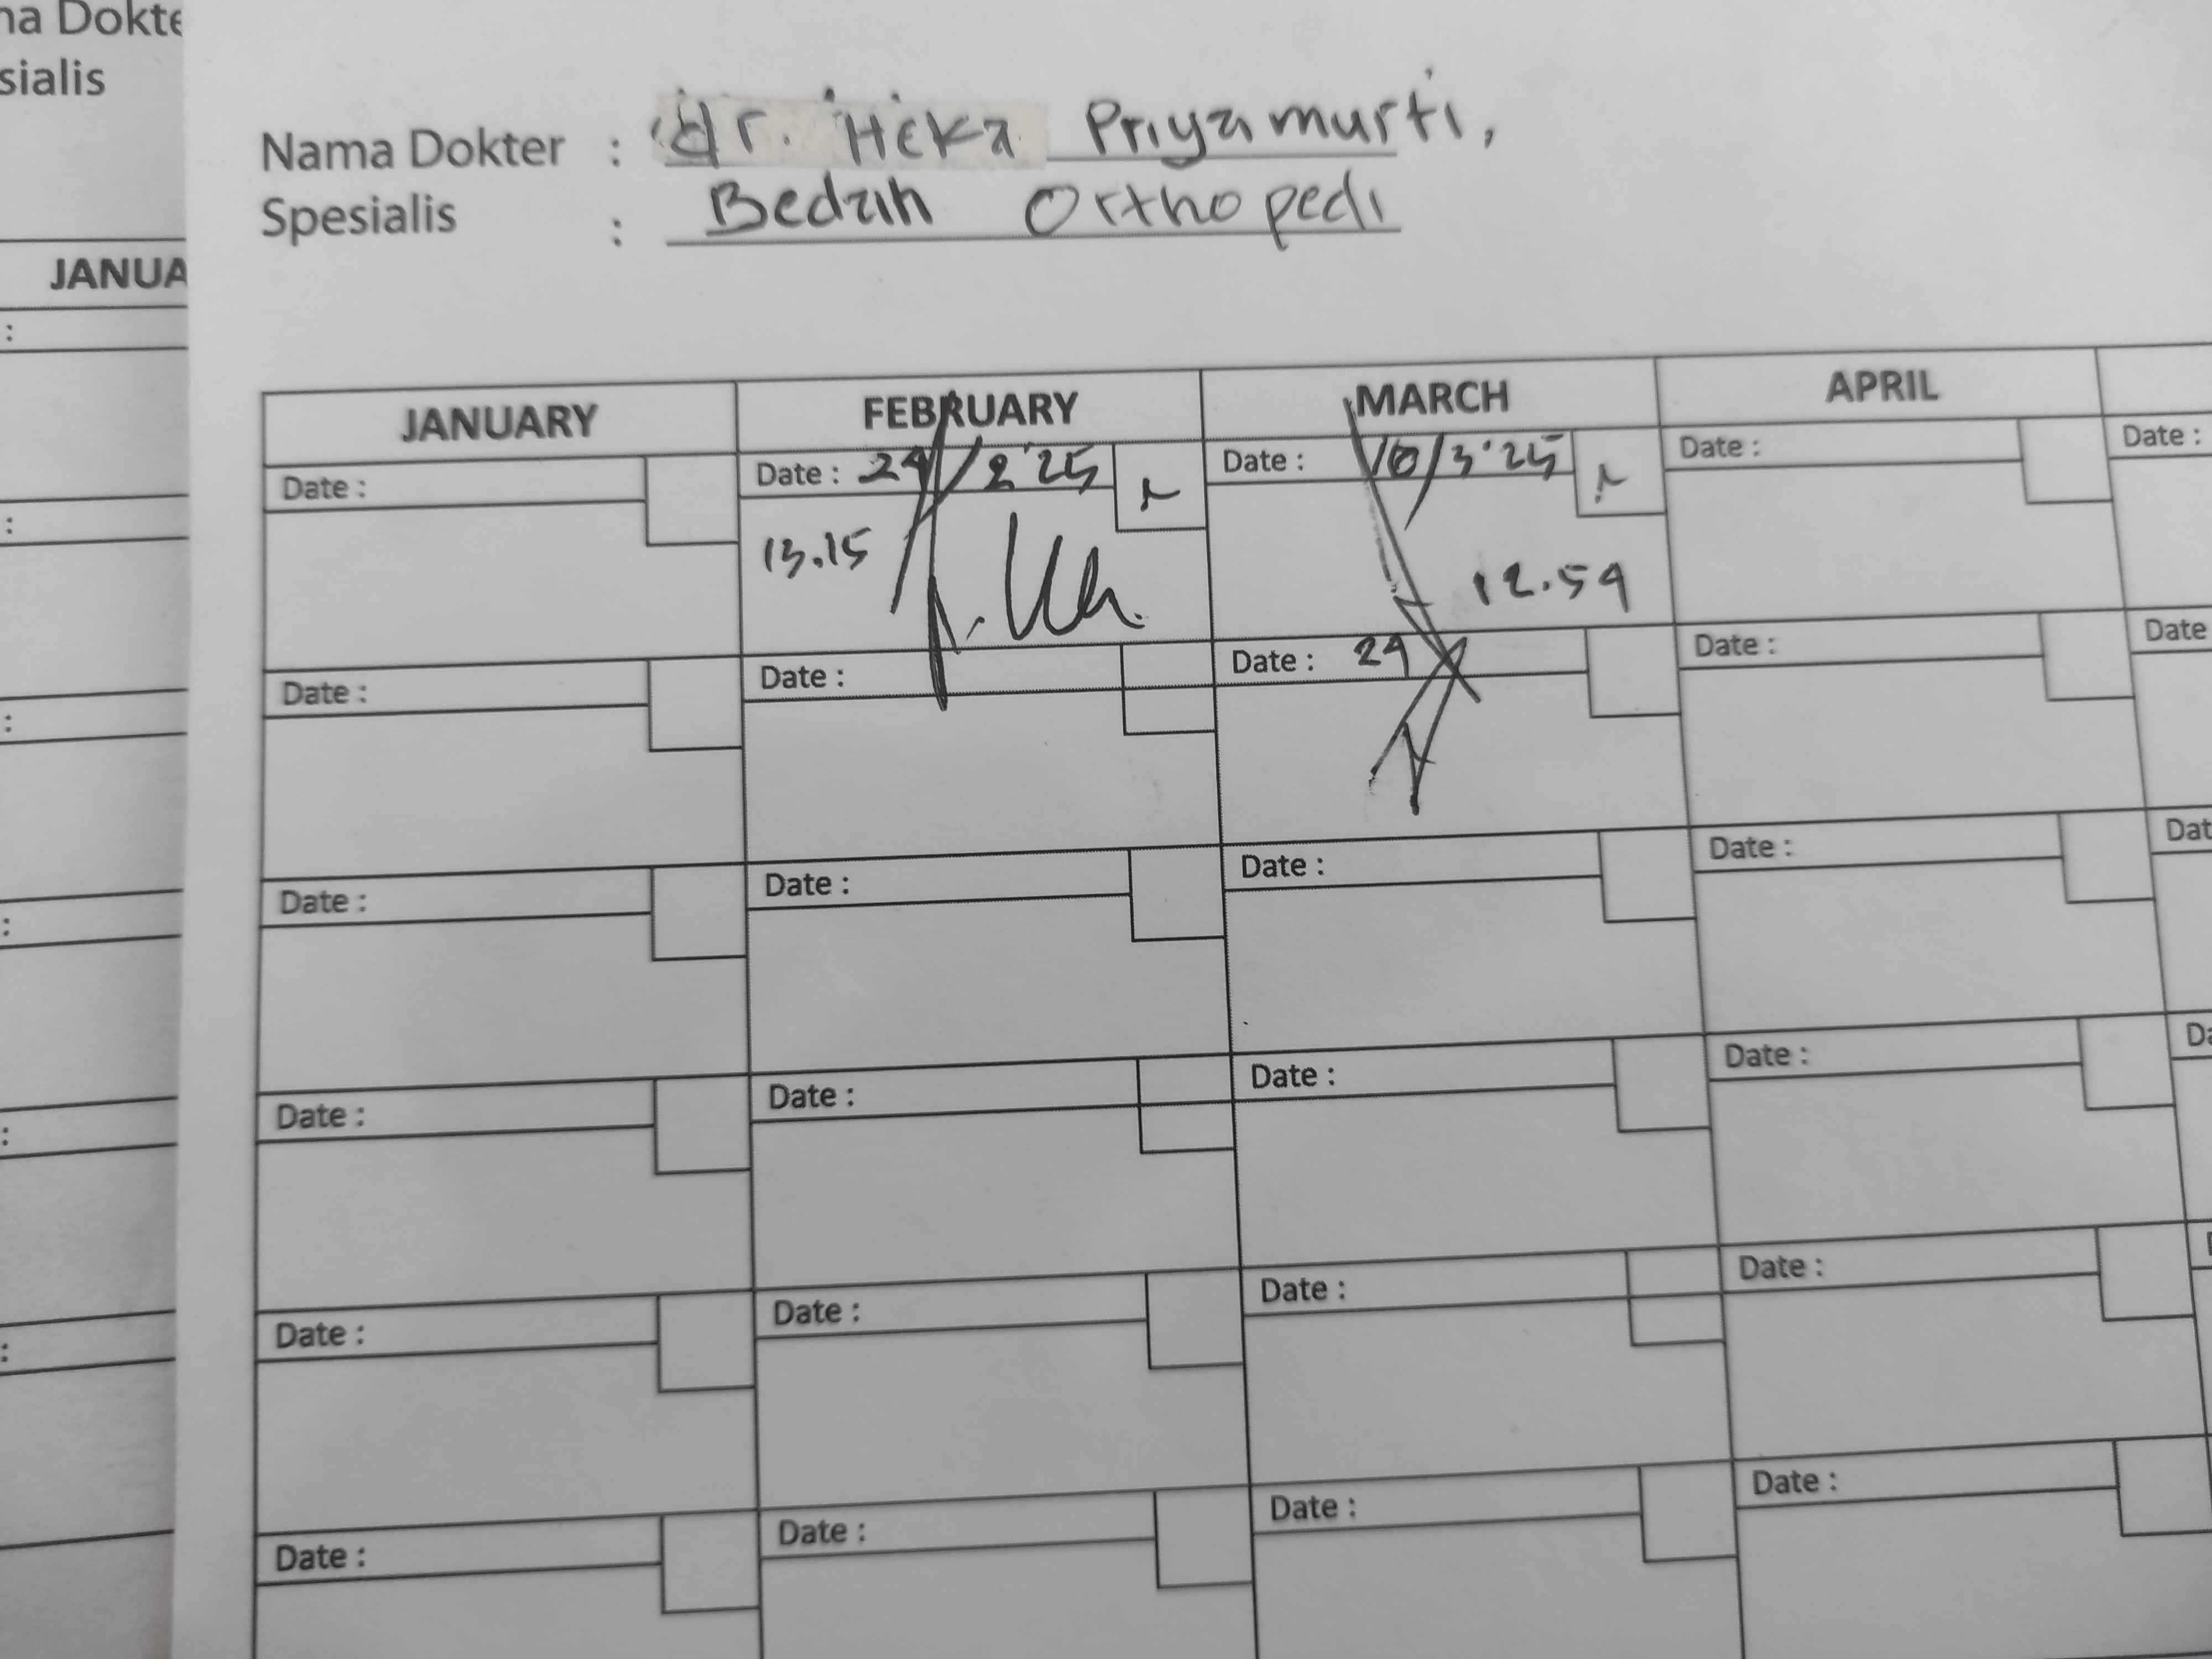 na Dokte
sialis
JANUA
:
:
:
:
:
:
Nama Dokter : dr. Heka Priyamurti,
Spesialis : Bedah Orthopedi
JANUARY FEBRUARY MARCH APRIL
Date : Date : 24/2'25 Date : 10/3'25 Date : Date :
13.15 12.54
Date : Date : Date : 24 Date : Date
Date : Date : Date : Date : Dat
Date : Date : Date : Date : Da
Date : Date : Date : Date :
Date : Date : Date : Date :